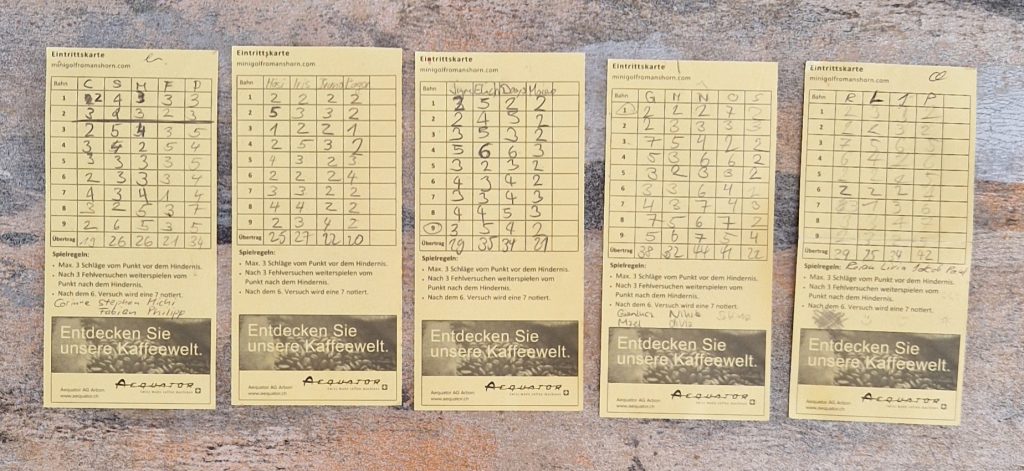 Eintrittskarte
minigolfromanshorn.com
Bahn C S M F P
1 2 4 3 3 3
2 3 2 3 2 3
3 2 5 4 3 5
4 3 4 2 5 4
5 3 3 3 3 5
6 2 3 3 3 4
7 4 3 4 1 4
8 3 2 5 3 7
9 2 6 5 3 5
Übertrag 19 26 26 21 34
Spielregeln:
• Max. 3 Schläge vom Punkt vor dem Hindernis.
• Nach 3 Fehlversuchen weiterspielen vom
Punkt nach dem Hindernis.
• Nach dem 6. Versuch wird eine 7 notiert.
Corinne Stephan Michi
Fabien Philipp
Entdecken Sie
unsere Kaffeewelt.
Aequator AG Arbon
AEQUATOR
www.aequator.ch
Eintrittskarte
minigolfromanshorn.com
Bahn Iris
1 2 2 2 2
2 5 3 3 2
3 1 2 2 1
4 2 5 3 2
5 4 3 2 3
6 2 2 2 4
7 3 3 2 2
8 4 4 2 2
9 2 3 4 2
Übertrag 25 27 22 20
Spielregeln:
• Max. 3 Schläge vom Punkt vor dem Hindernis.
• Nach 3 Fehlversuchen weiterspielen vom
Punkt nach dem Hindernis.
• Nach dem 6. Versuch wird eine 7 notiert.
Entdecken Sie
unsere Kaffeewelt.
Aequator AG Arbon
AEQUATOR
www.aequator.ch
Eintrittskarte
minigolfromanshorn.com
Bahn
1 3 5 2 2
2 2 4 5 2
3 3 5 3 2
4 5 6 6 3
5 3 2 3 2
6 4 3 4 2
7 3 3 4 3
8 4 4 5 3
9 3 5 4 2
Übertrag 29 35 34 21
Spielregeln:
• Max. 3 Schläge vom Punkt vor dem Hindernis.
• Nach 3 Fehlversuchen weiterspielen vom
Punkt nach dem Hindernis.
• Nach dem 6. Versuch wird eine 7 notiert.
Entdecken Sie
unsere Kaffeewelt.
Aequator AG Arbon
AEQUATOR
www.aequator.ch
Eintrittskarte
minigolfromanshorn.com
Bahn G M N O S
1 2 2 2 7 2
2 2 3 3 3 5
3 7 5 4 2 2
4 5 3 6 6 2
5 3 2 3 3 2
6 3 3 6 4
7 4 3 7 4 3
8 7 5 6 7 2
9 5 6 7 5 4
Übertrag 38 32 44 41 22
Spielregeln:
• Max. 3 Schläge vom Punkt vor dem Hindernis.
• Nach 3 Fehlversuchen weiterspielen vom
Punkt nach dem Hindernis.
• Nach dem 6. Versuch wird eine 7 notiert.
Entdecken Sie
unsere Kaffeewelt.
Aequator AG Arbon
AEQUATOR
www.aequator.ch
Eintrittskarte
minigolfromanshorn.com
Bahn R L J P
1
2
3 7 5 6 3
4 6 4 2 6
5
6 2 2 2
7
8
9
Übertrag 29 25 24 42
Spielregeln:
• Max. 3 Schläge vom Punkt vor dem Hindernis.
• Nach 3 Fehlversuchen weiterspielen vom
Punkt nach dem Hindernis.
• Nach dem 6. Versuch wird eine 7 notiert.
Entdecken Sie
unsere Kaffeewelt.
Aequator AG Arbon
AEQUATOR
www.aequator.ch